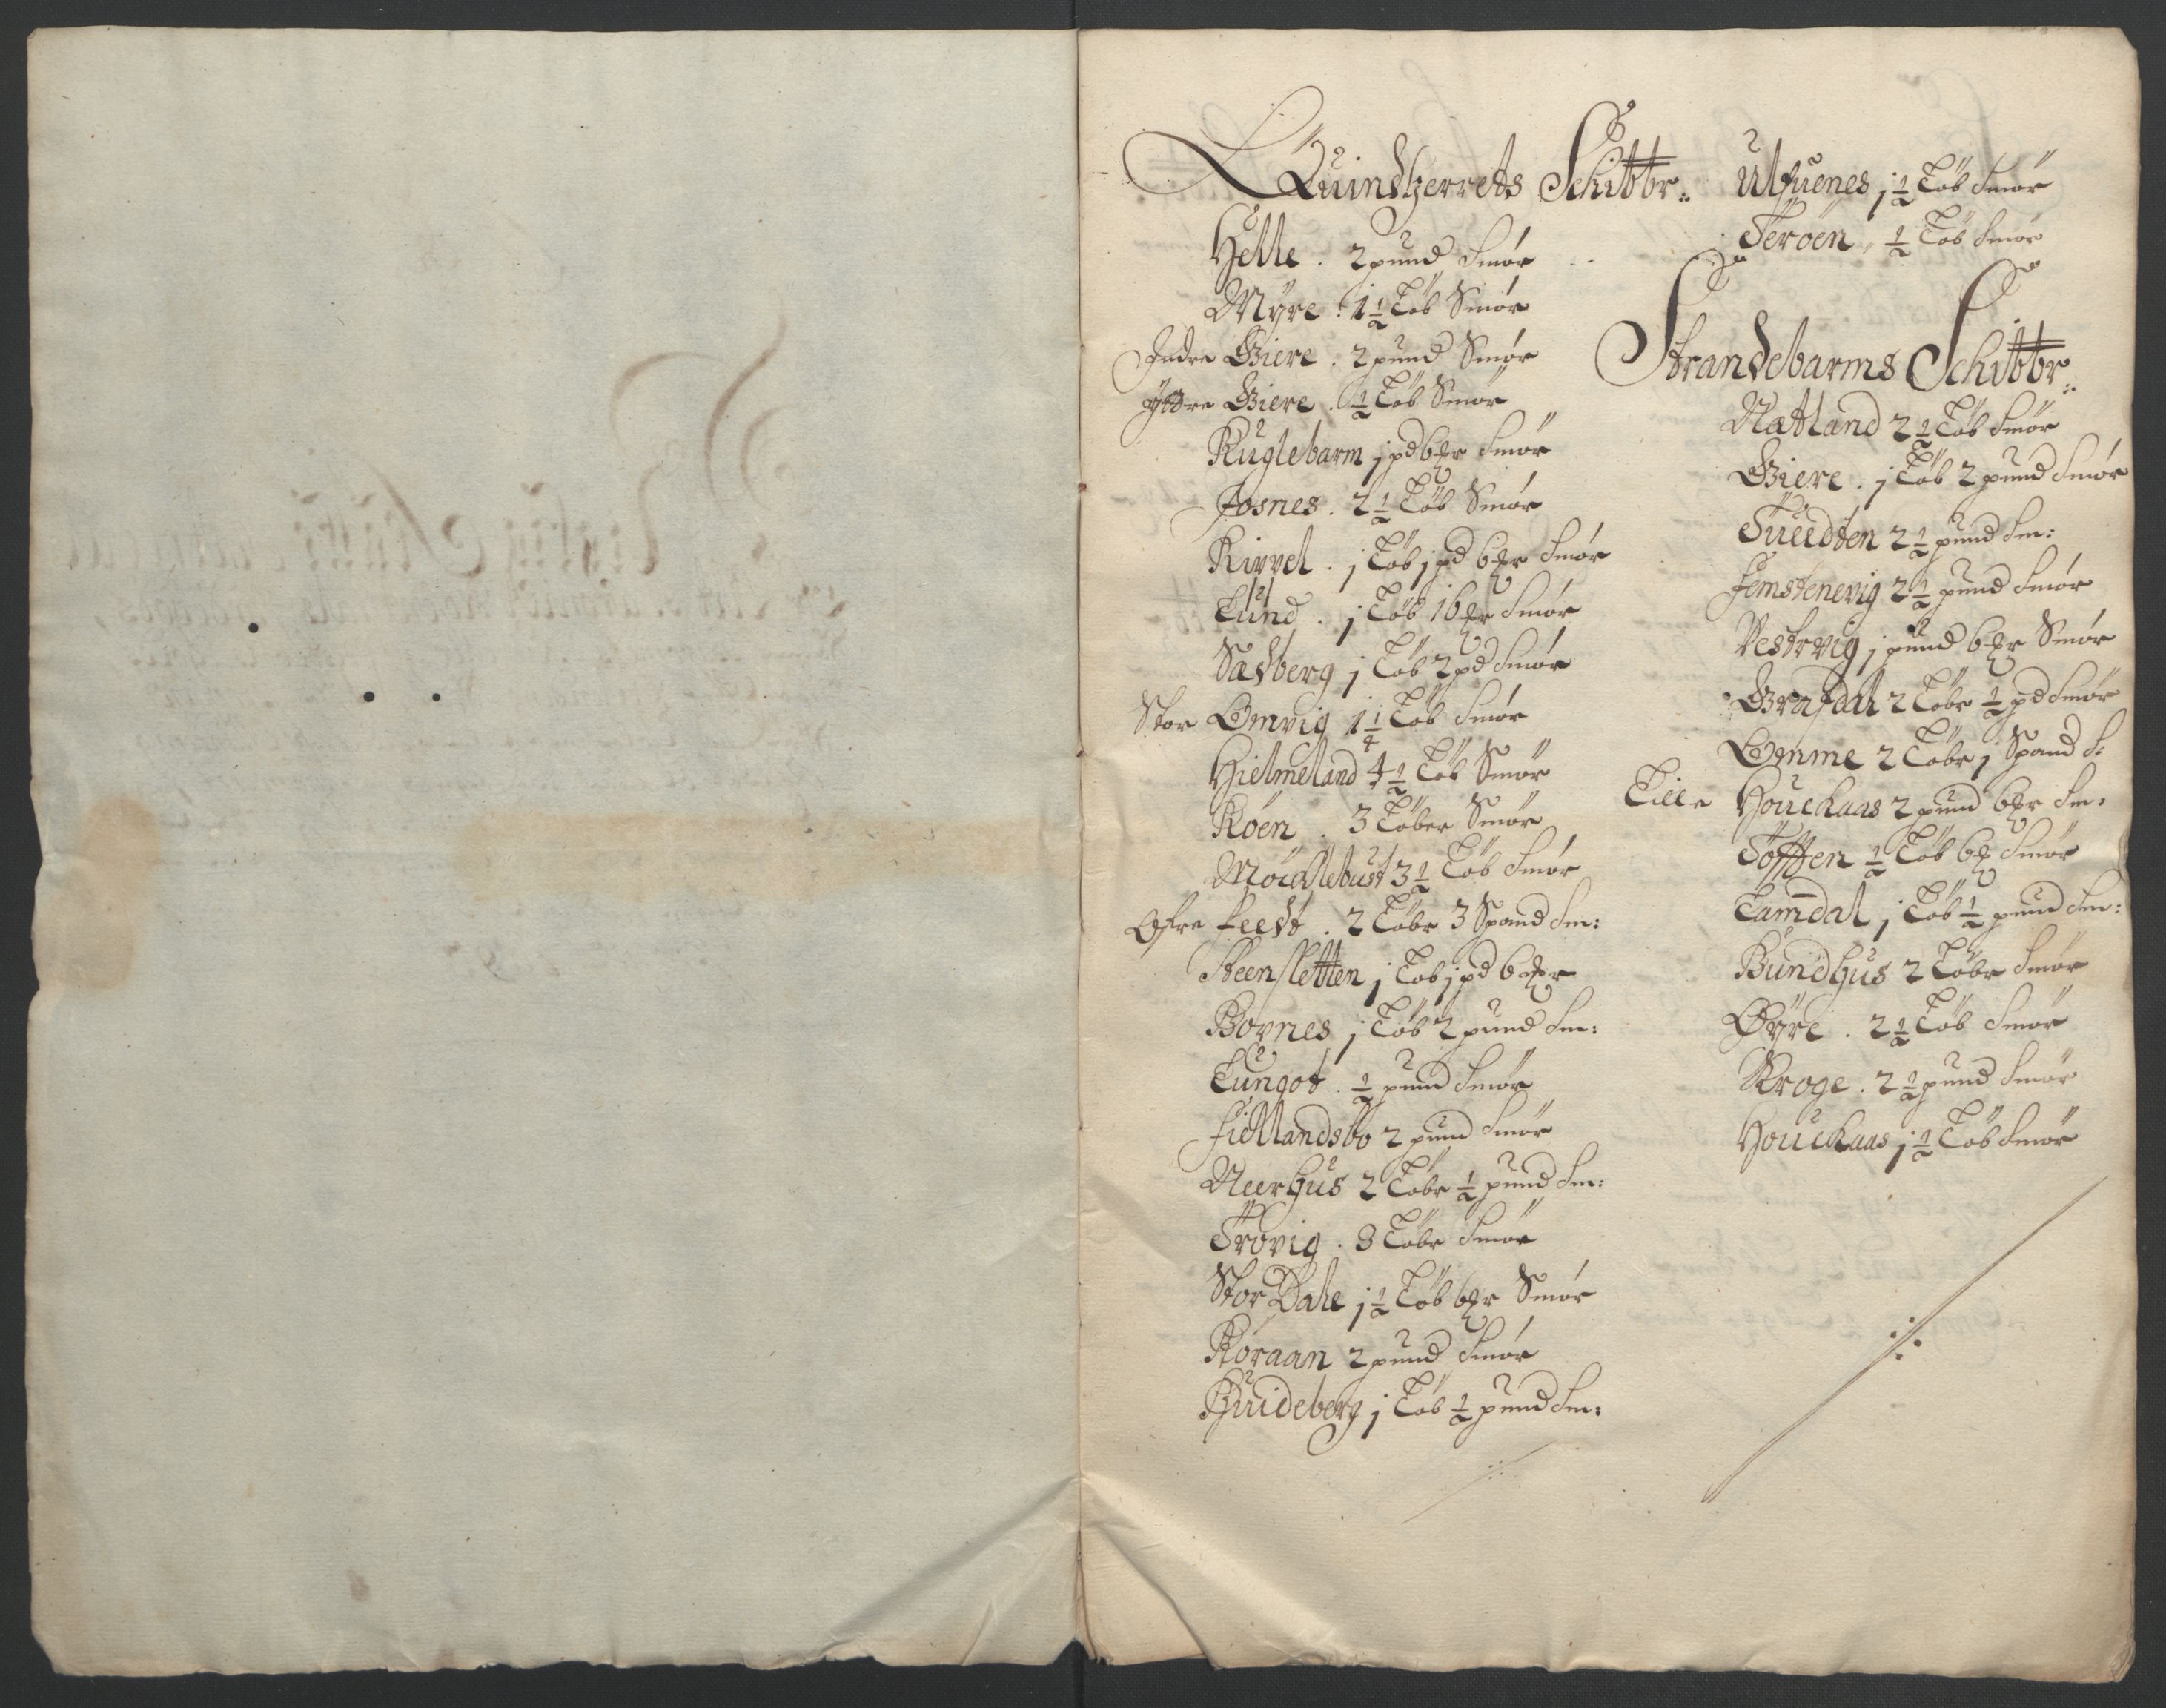 Quindherrets Schibbr:
Helle . 2 pund Smør
Myre . 1 1/2 Løb Smør
Indre Giere . 2 pund Smør
Yttre Giere . 1/2 Løb Smør
Kuglebarm j pd 6 mkr Smør
Josnes . 2 1/2 Løb Smør
Rivvel . j Løb j pd 6 mkr Smør
Lund . j Løb 16 mkr Smør
Sædberg j Løb 2 pd Smør
Stor Omvig 1 1/4 Løb Smør
Hielmeland 4 1/2 Løb Smør
Røen . 3 Løber Smør
Møcklebust 3 1/2 Løb Smør
Øfre Feedt . 2 Løbr 3 Spand Sm:
Steensletten j Løb j pd 6 mkr
Bovnes j Løb 2 pund Sm:
Lungot . 1/2 pund Smør
Fiellandsbo 2 pund Smør
Neerhus 2 Løbr 1/2 pund Sm:
Trovig . 3 Løbr Smør
Stor Dale j 1/2 Løb 6 mkr Smør
Røraan 2 pund Smør
Huideberg j Løb 1/2 pund Sm:
Ulfuenes j 1/2 Løb Smør
Terøen, 1/2 Løb Smør
Strandebarms Schibbr:
Natland 2 1/2 Løb Smør
Giere . j Løb 2 pund Smør
Tueidten 2 1/2 pund Sm:
Femstenevig 2 1/2 pund Smør
Vestrvig j pund 6 mkr Smør
Grafdal 2 Løbr 1/2 pd Smør
Omme 2 Løbr j Spand S:
Lille Houckaas 2 pund 6 mkr Sm:
Tofften 1/2 Løb 6 mk Smør
Lamdal j Løb 1/2 pund Sm:
Bundhus 2 Løbr Smør
Øyre . 2 1/2 Løb Smør
Kroge . 2 1/2 pund Smør
Houckaas j 1/2 Løb Smør